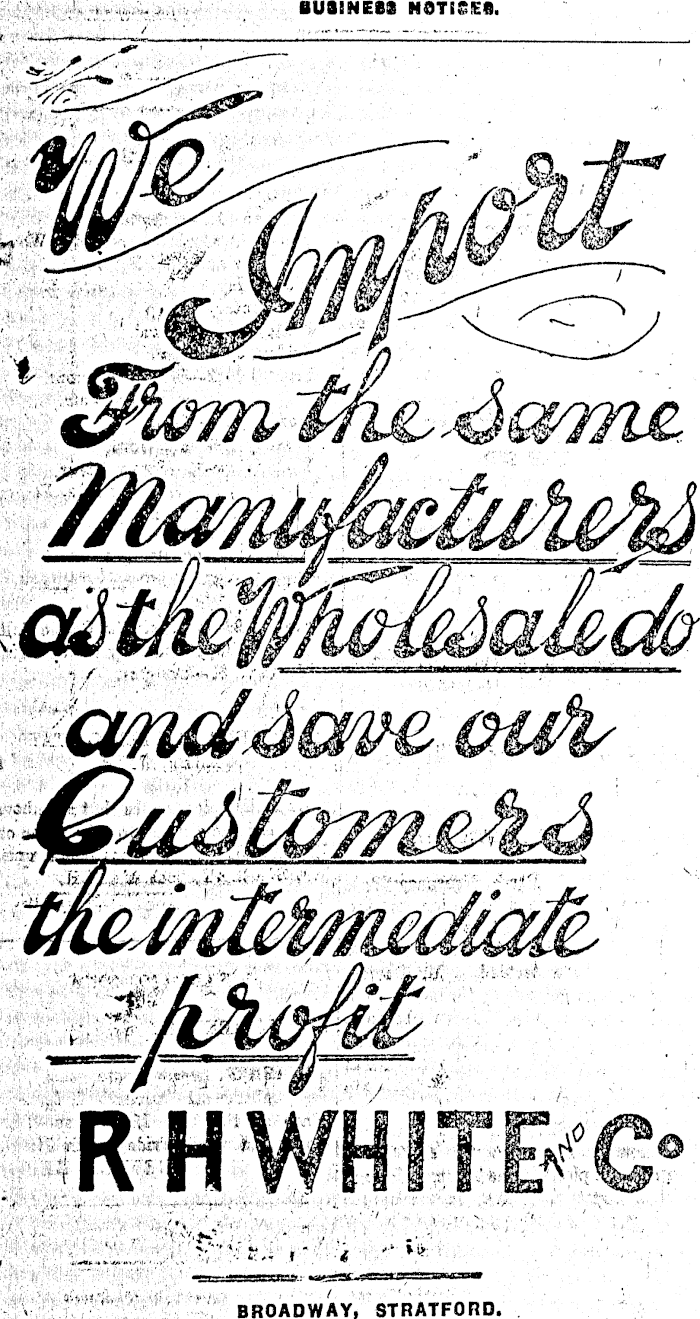 BUSINESS NOTICES.
We
Import
From the same
Manufacturers
as the Wholesale do
and save our
Customers
the intermediate
profit
R H WHITE AND Co
BROADWAY, STRATFORD.